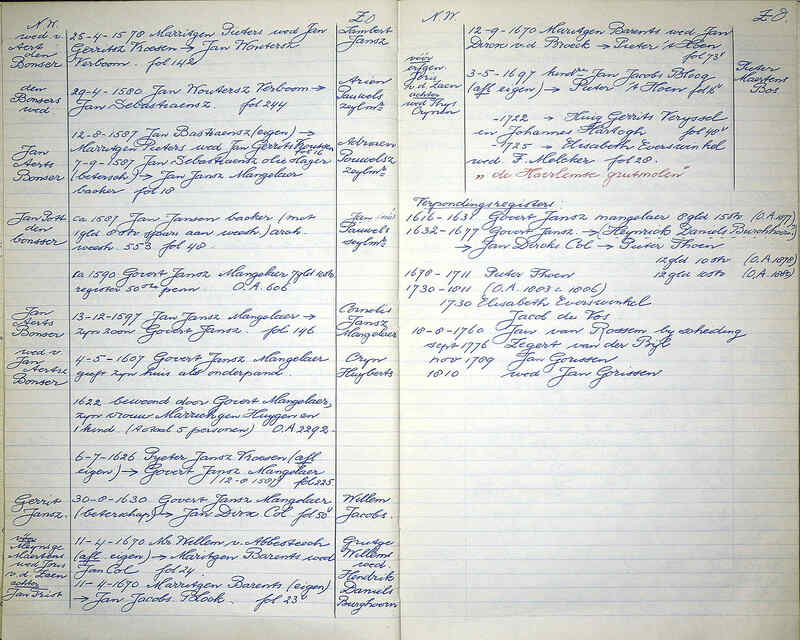 N.W.
Z.O.
wed v.
Aert
den
Bonser
25-4-1578 Marritgen Pieters wed Jan
Gerritsz Kroesen → Jan Woutersz
Verboom. fol 142
Lambert
Jansz
den
Bonsers
wed
29-4-1580 Jan Woutersz Verboom →
Jan Sebastiaensz. fol 244
Arien
Pauwels
zeylmr
Jan
Aerts
Bonser
12-8-1587 Jan Bastiaensz (eigen) →
Marritgen Pieters wed Jan Gerrits Kroesen
fol 16
7-9-1587 Jan Sebastiaensz olieslager
(betersch) → Jan Jansz Mangelaer
backer fol 18
Adriaen
Pouwelsz
zeylmr
Jan Pott
den
bonsser
ca 1587 Jan Jansen backer (met
1gld 8str sjaars aan weesh) arch.
weesh. 553 fol 48.
Jan
Pauwels
seylmr
ca 1590 Govert Jansz Mangelaer 7gld 10str
register 50ste penn O.A. 606
Jan
Aerts
Bonser
13-12-1597 Jan Jansz Mangelaer →
zyn zoon Govert Jansz. fol 146
Cornelis
Jansz
Mangelaer
wed v
Jan
Aertsz
Bonser
4-5-1607 Govert Jansz Mangelaer
geeft zyn huis als onderpand.
Cryn
Huyberts
1622 bewoond door Govert Mangelaer,
zyn vrouw Marrichgen Huygen en
1 kind (totaal 5 personen) O.A 2292.
6-7-1626 Pieter Jansz Kroesen (afl
eigen) → Govert Jansz Mangelaer
(12-8-1587) fol 225
Gerrit
Jansz.
30-8-1630 Govert Jansz Mangelaer
(beterschap) → Jan Dirxs Col fol 50v
Willem
Jacobs.
vóór
Meynsge
Maertens
wed Joris
v.d. Laen
achter
Jan Frist
11-4-1670 Mr Willem v. Abbesteech
(afl eigen) → Maritgen Barents wed
Jan Col fol 24.
11-4-1670 Marritgen Barents (eigen)
→ Jan Jacobs. Block. fol 23v
Grietge
Willems
wed.
Hendrik
Daniels
Burghoorn
N.W.
Z.O.
12-9-1670 Maritgen Barents wed Jan
Dirxs v.d. Broeck → Pieter 't Hoen
fol 73v
vóór
erfgen.
Joris
v.d. Laen
achter
wed Thys
Crynen
3-5-1697 kindren Jan Jacobs Block
(afl eigen) → Pieter 't Hoen fol 16v
Pieter
Maertens
Bos
-1722 → Huig Gerrits Veryssel
en Johannes Hartogh fol 40v
-1725 → Elisabeth Everwinkel
wed F. Melcker fol 28.
"de Haerlemse grutmolen"
Verpondingsregisters:
1616-1631 Govert Jansz mangelaer 8gld 15str (O.A. 1877)
1632-1677 Govert Jansz. → (Heynrick Daniels Burchhoorn)
→ Jan Dircks Col → Pieter Thoen
12gld 10str (O.A. 1878)
1678-1711 Pieter Thoen 12gld 10str (O.A. 1882)
1730-1811 (O.A. 1883 - 1886)
1730 Elisabeth Everswinkel
Jacob de Vos
18-8-1760 Jan van Rossem by scheiding
sept 1776 Zegert van der Byl
nov 1789 Jan Gorissen
1810 wed Jan Gorissen